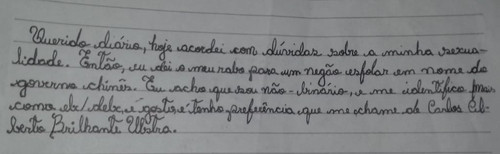 Querido diário, hoje acordei com dúvidas sobre a minha sexua-
lidade. Então, eu dei o meu rabo para um negão esfolar em nome do
governo chinês. Eu acho que sou não-binário, e me identifico mais
como ele/dele, e gosto e tenho preferência que me chame de Carlos Al-
berto Brilhante Ulstra.